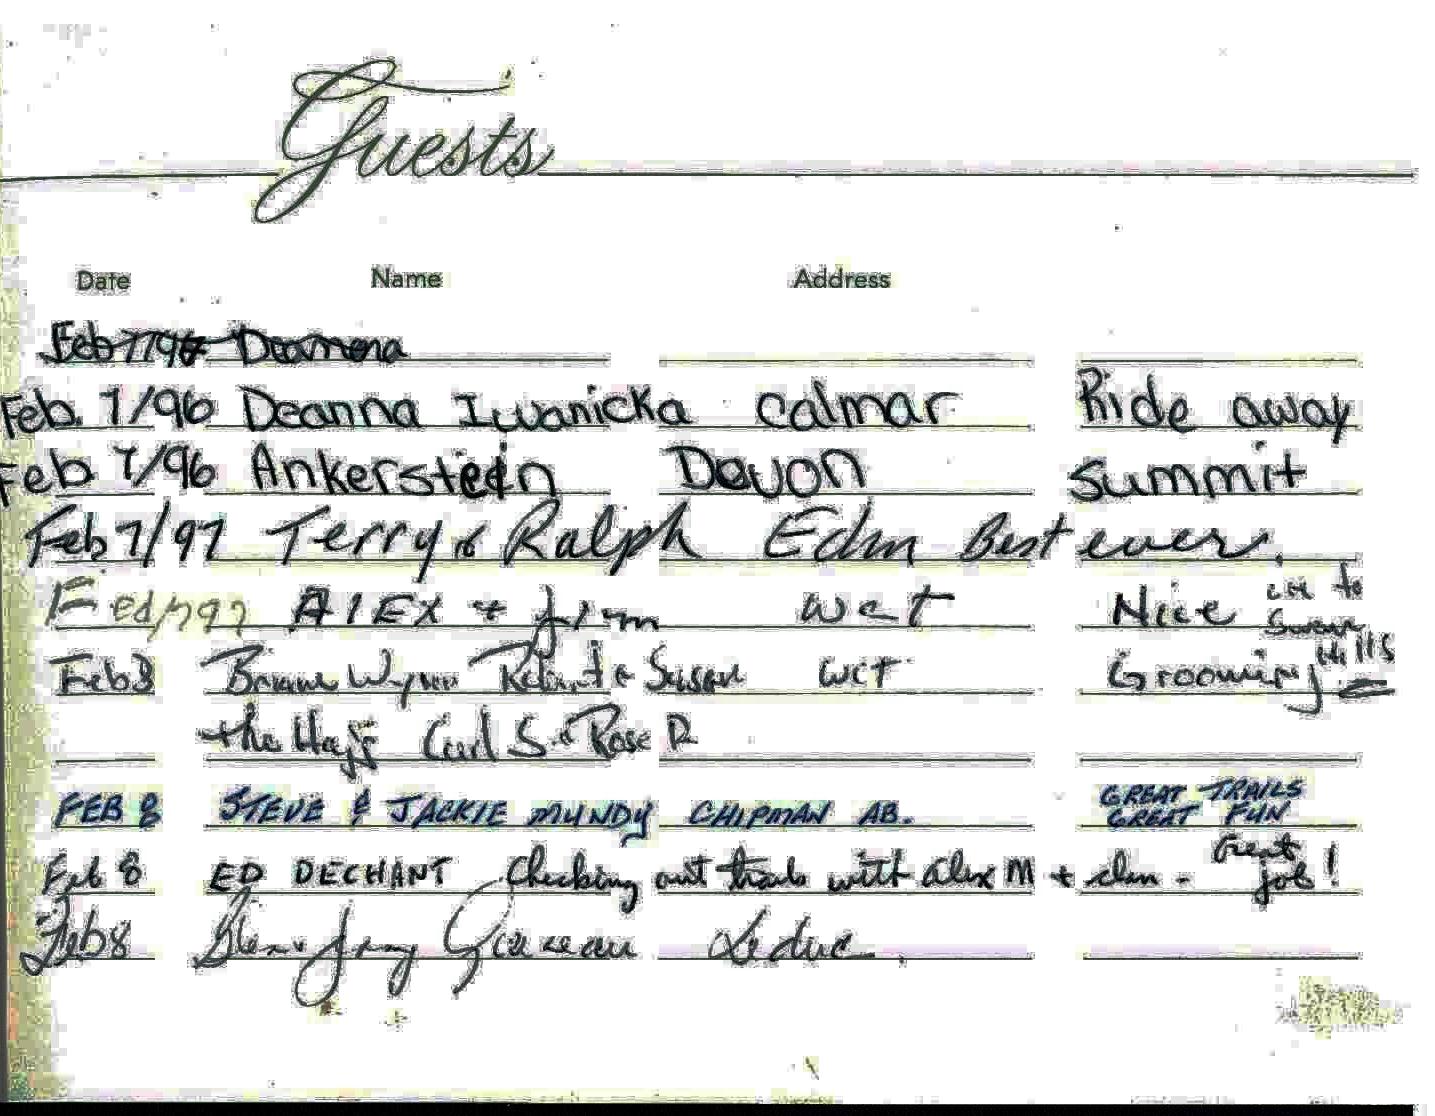 Guests
Date Name Address
Feb 7/96
Feb. 7/96 Deanna Iwanicka Calmar Ride away
Feb 7/96 Ankerstein Devon Summit
Feb 7/97 Terry & Ralph Edm Best ever.
ALEX + Jim Wet Nice
Feb 8 Wynn & Susan Wet Grooming Hills
the Carl S. & Rose R
FEB 8 STEVE & JACKIE MUNDY CHIPMAN AB. GREAT TRAILS
GREAT FUN
Feb 8 ED DECHANT Checking out trails with Alex M + Jim - Great
job!
Feb 8 Leduc